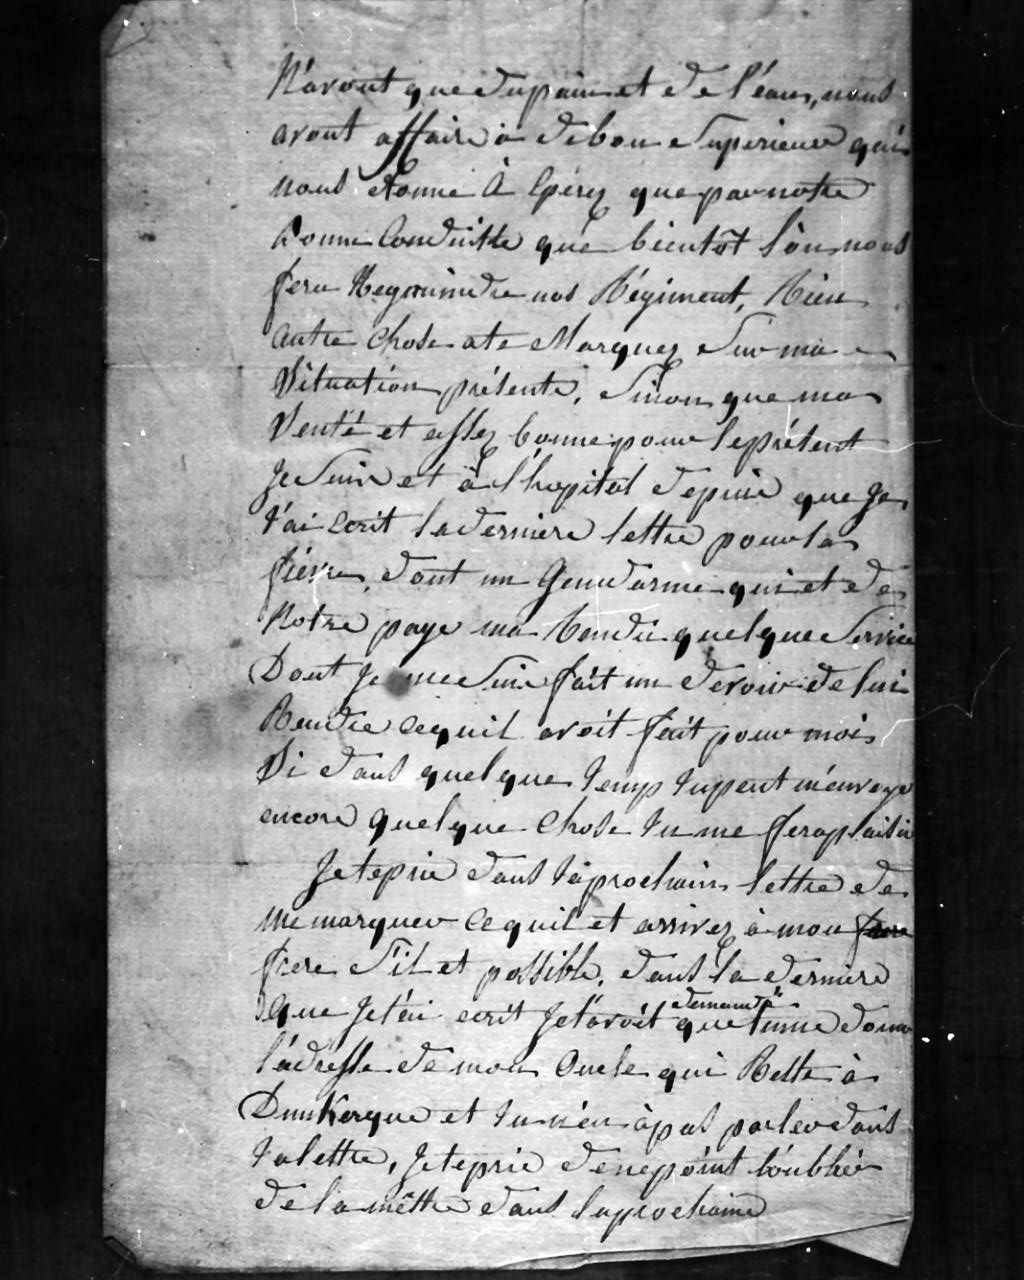 N'avont que dupain et de l'éau, nous
avont affaire à de bon Superieur qui
nous donne à Spérez que par notre
bonne Conduitte que bientôt l'on nous
fera Regoindre nos Régiment, Rien
autre chose ate Marquez Sur ma
Situation présente, Sinon que ma
Senté et assez bonne pour leprésent
Je Suis et à l'hopital depuis que Je
t'ai Ecrit la derniere lettre pour la
fiévre, dont un Gendarme qui et de
Notre paye ma Rendu quelque Service
Dont Je me Suis fait un devoir de lui
Rendre cequil avoit fait pour mois
Si dans quelque temp tupeut m'envoye
encore quelque chose tu me feraplaisir
Jeteprie dans taprochaine lettre de
me marquer cequil et arrivez à mon frere
frere S'il et possible, dans la derniere
que Jet'ai ecrit Jet'avoit demandé que tume donne
l'adresse de mon Oncle qui Reste à
Dunkerque et tum'en àpas parler dans
talettre, Jeteprie denepoint l'oublier
de la mettre dans laprochaine